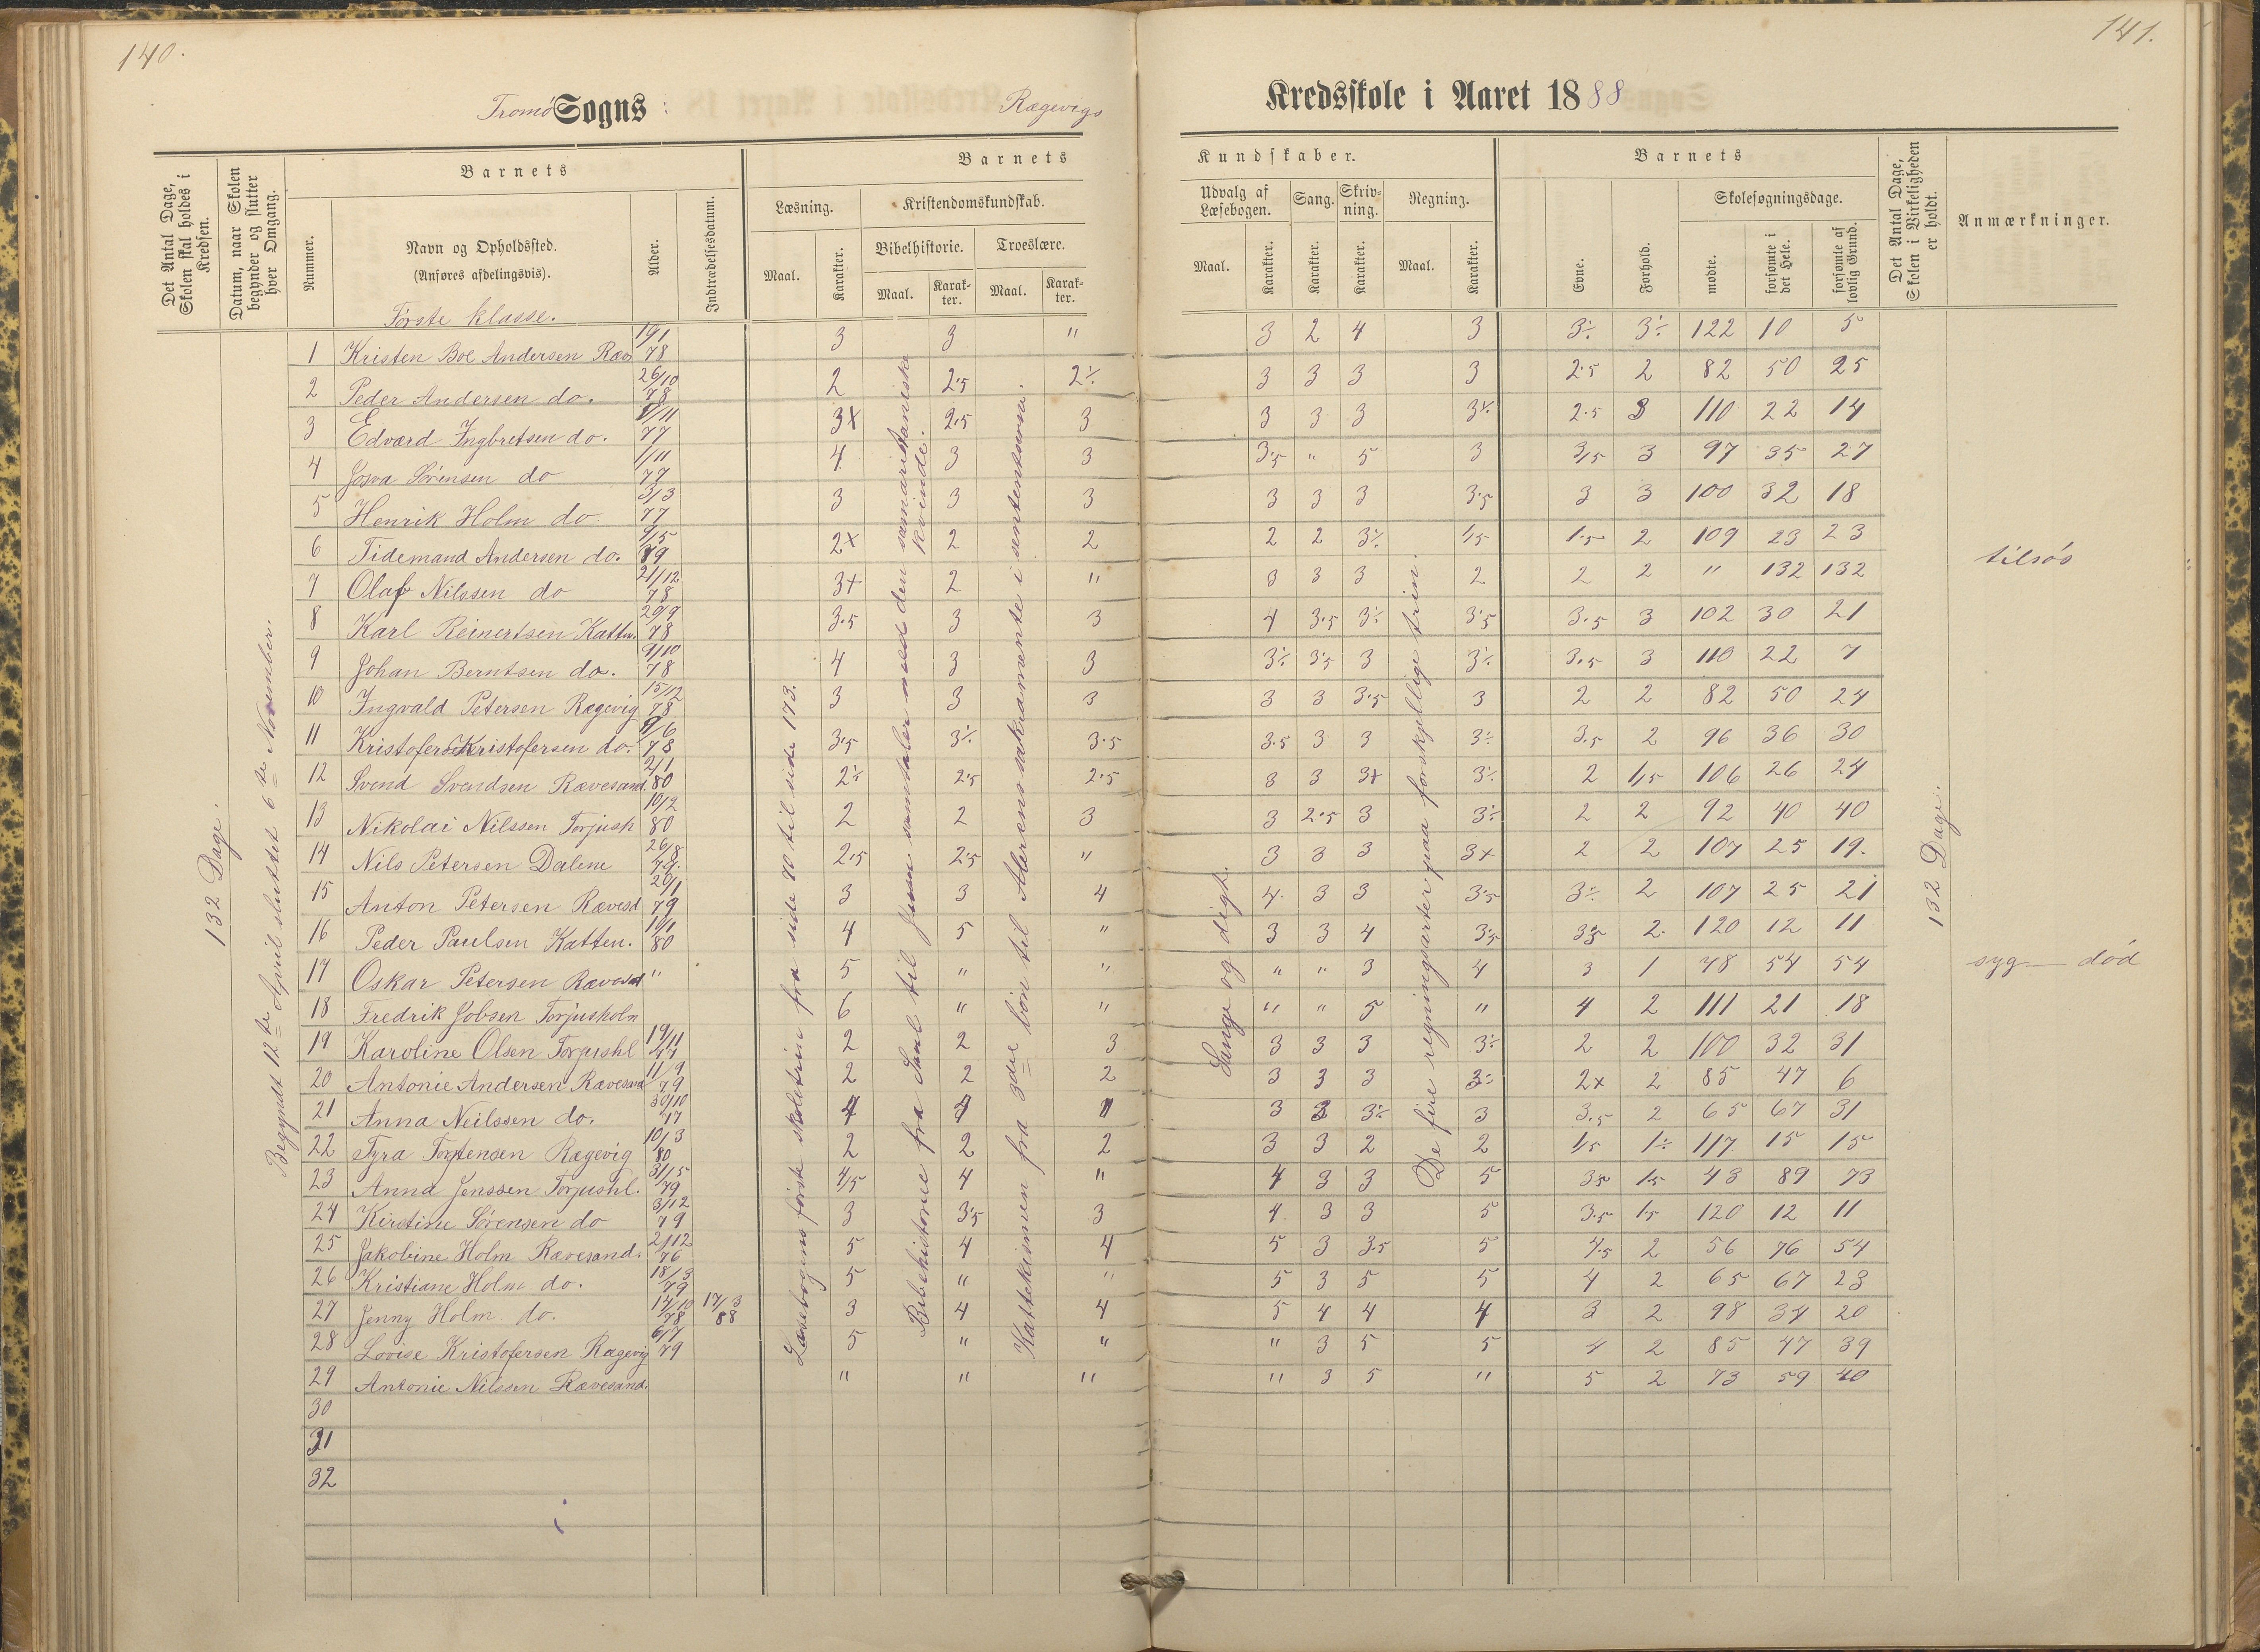 140.
141.
Tromø Sogns Rægevigs Kredsskole i Aaret 1888
Det Antal Dage, Skolen skal holdes i Kredsen.
Datum, naar Skolen begynder og slutter hver Omgang.
Barnets
Nummer.
Navn og Opholdssted.
(Anføres afdelingsvis).
Alder.
Indtrædelsesdatum.
Barnets Kundskaber.
Læsning.
Maal.
Karakter.
Kristendomskundskab.
Bibelhistorie.
Maal.
Karakter.
Troeslære.
Maal.
Karakter.
Udvalg af Læsebogen.
Maal.
Karakter.
Sang.
Karakter.
Skrivning.
Karakter.
Regning.
Maal.
Karakter.
Barnets
Evne.
Forhold.
Skolesøgningsdage.
mødte.
forsømte i det Hele.
forsømte af lovlig Grund.
Det Antal Dage, Skolen i Virkeligheden er holdt.
Anmærkninger.
132 Dage.
Begyndt 12te April sluttet 6te November.
Læsebogens første skoletrin fra side 70 til side 173.
Bibelhistorie fra Saul til Jesu samtaler med den samaritaniske kvinde.
Katekismen fra 3die bøn til Alterens sakramente i sentenserne.
Sange og digt.
De fire regningsarter paa forskjellige trin.
132 Dage.
Første klasse.
1 Kristen Boe Andersen Ræv 19/1 78 3 3 " 3 2 4 3 3÷ 3÷ 122 10 5
2 Peder Andersen do. 26/10 78 2 2.5 2÷ 3 3 3 3 2.5 2 82 50 25
3 Edvard Ingbretsen do. 8/11 77 3+ 2.5 3 3 3 3 3÷ 2.5 3 110 22 14
4 Josva Sørensen do 1/11 79 4 3 3 3.5 " 5 3 3/5 3 97 35 27
5 Henrik Holm do. 3/3 77 3 3 3 3 3 3 3.5 3 3 100 32 18
6 Tidemand Andersen do. 9/5 79 2+ 2 2 2 2 3÷ 1/5 1.5 2 109 23 23
7 Olaf Nilssen do 21/12 78 3+ 2 " 3 3 3 2 2 2 " 132 132 tilsøs
8 Karl Reinertsen Katten. 29/9 78 3.5 3 3 4 3.5 3÷ 3.5 3.5 3 102 30 21
9 Johan Berntsen do. 9/10 78 4 3 3 3÷ 3.5 3 3÷ 3.5 3 110 22 7
10 Ingvald Petersen Rægevig 15/12 78 3 3 3 3 3 3.5 3 2 2 82 50 24
11 Kristofer Kristofersen do. 9/6 78 3.5 3÷ 3.5 3.5 3 3 3÷ 3.5 2 96 36 30
12 Svend Svendsen Rævesand. 2/1 80 2÷ 2.5 2.5 3 3 3+ 3÷ 2 1/5 106 26 24
13 Nikolai Nilssen Torjush 10/2 80 2 2 3 3 2.5 3 3÷ 2 2 92 40 40
14 Nils Petersen Dalene 26/8 77. 2.5 2.5 " 3 3 3 3+ 2 2 107 25 19.
15 Anton Petersen Rævesd 20/1 79 3 3 4 4. 3 3 3.5 3÷ 2 107 25 21
16 Peder Paulsen Katten. 10/1 80 4 5 " 3 3 4 3.5 3.5 2. 120 12 11
17 Oskar Petersen Rævesd " 5 " " " " 3 4 3 1 78 54 54 syg — død
18 Fredrik Jobsen Torjusholm 6 " " " " 5 " 4 2 111 21 18
19 Karoline Olsen Torjushl 19/11 77 2 2 3 3 3 3 3÷ 2 2 100 32 31
20 Antonie Andersen Rævesand 11/9 79 2 2 2 3 3 3 3÷ 2+ 2 85 47 6
21 Anna Neilssen do. 30/10 77 4 4 4 3 3 3÷ 3 3.5 2 65 67 31
22 Tyra Torstensen Rægevig 10/3 80 2 2 2 3 3 2 2 1/5 1÷ 117. 15 15
23 Anna Jenssen Torjushl. 31/5 79 4/5 4 " 4 3 3 5 3.5 1.5 43 89 73
24 Kirstine Sørensen do 3/12 79 3 3.5 3 4. 3 3 5 3.5 1.5 120 12 11
25 Jakobine Holm Rævesand. 2/12 76 5 4 4 5 3 3.5 5 4.5 2 56 76 54
26 Kristiane Holm do. 18/3 79 5 " " 5 3 5 5 4 2 65 67 23
27 Jenny Holm do. 14/10 78 17/3 88 3 4 4 5 4 4 4 3 2 98 34 20
28 Lovise Kristofersen Rægevig 6/7 79 5 " " " 3 5 5 4 2 85 47 39
29 Antonie Nilssen Rævesand. " " " " 3 5 " 5 2 73 59 40
30
31
32